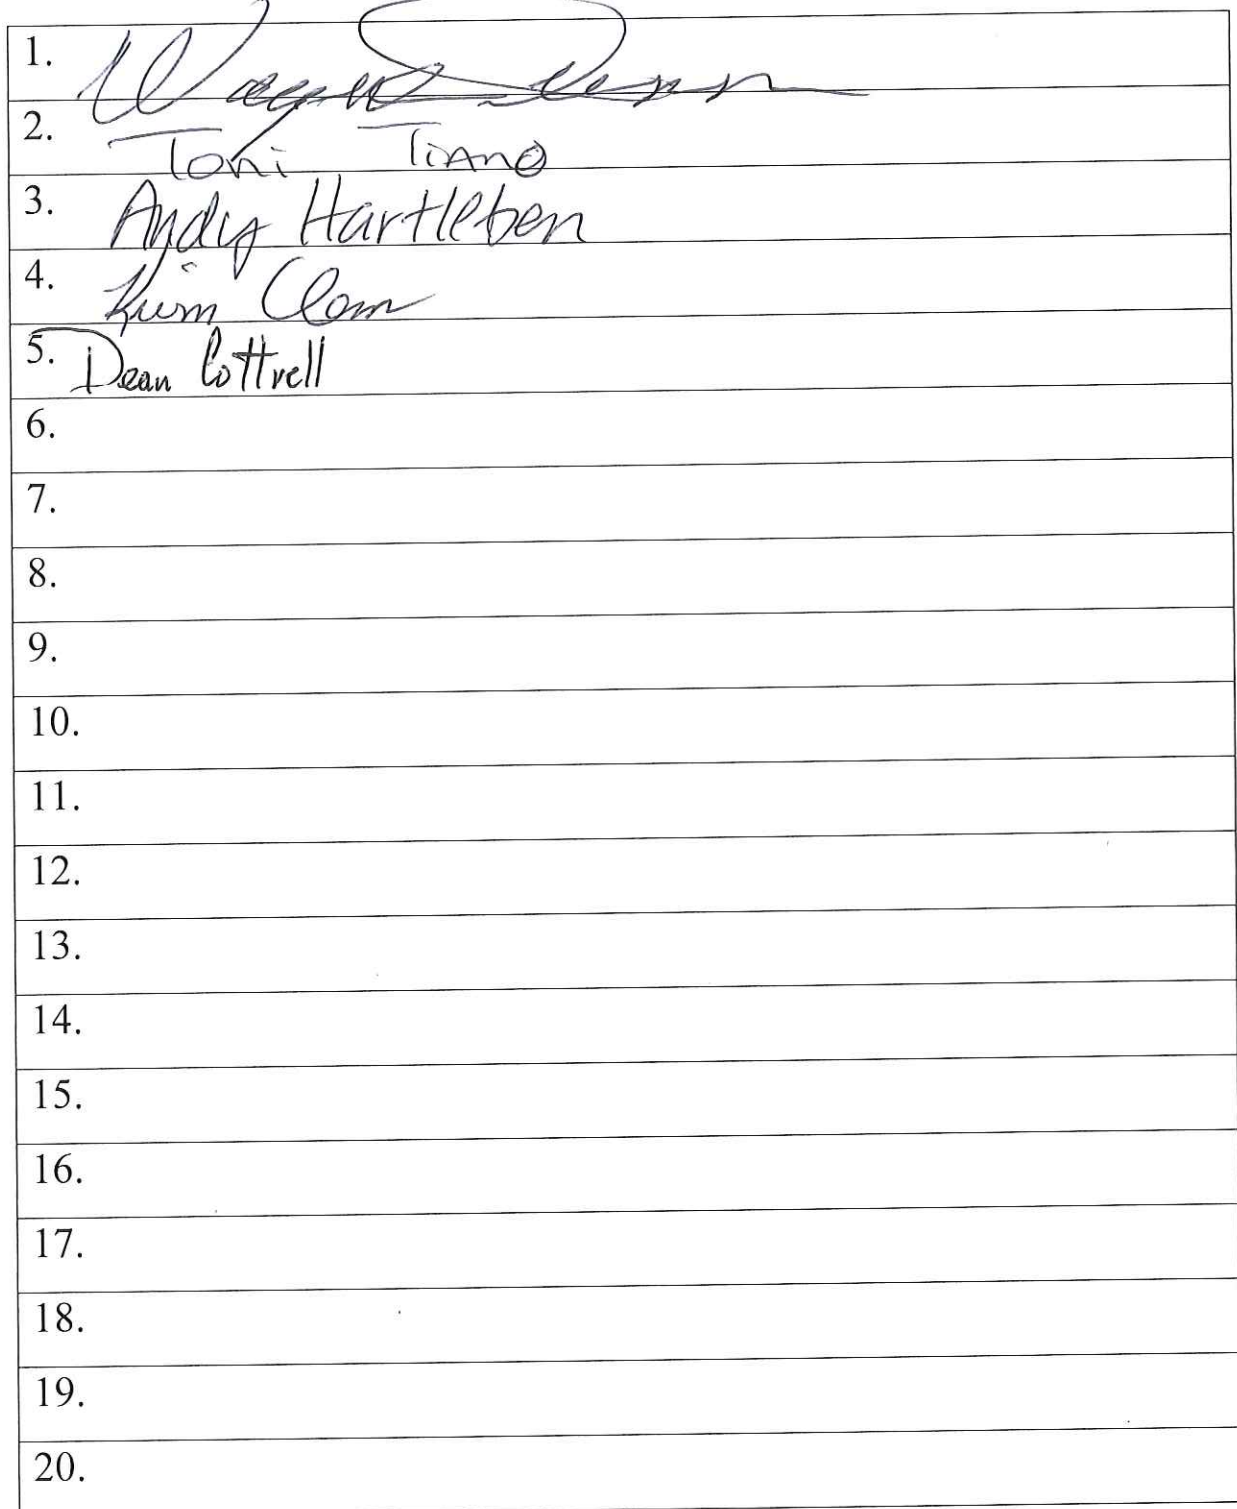 1. Wayne
2. Toni Tiano
3. Andy Hartleben
4. Kim Clem
5. Dean Cottrell
6.
7.
8.
9.
10.
11.
12.
13.
14.
15.
16.
17.
18.
19.
20.